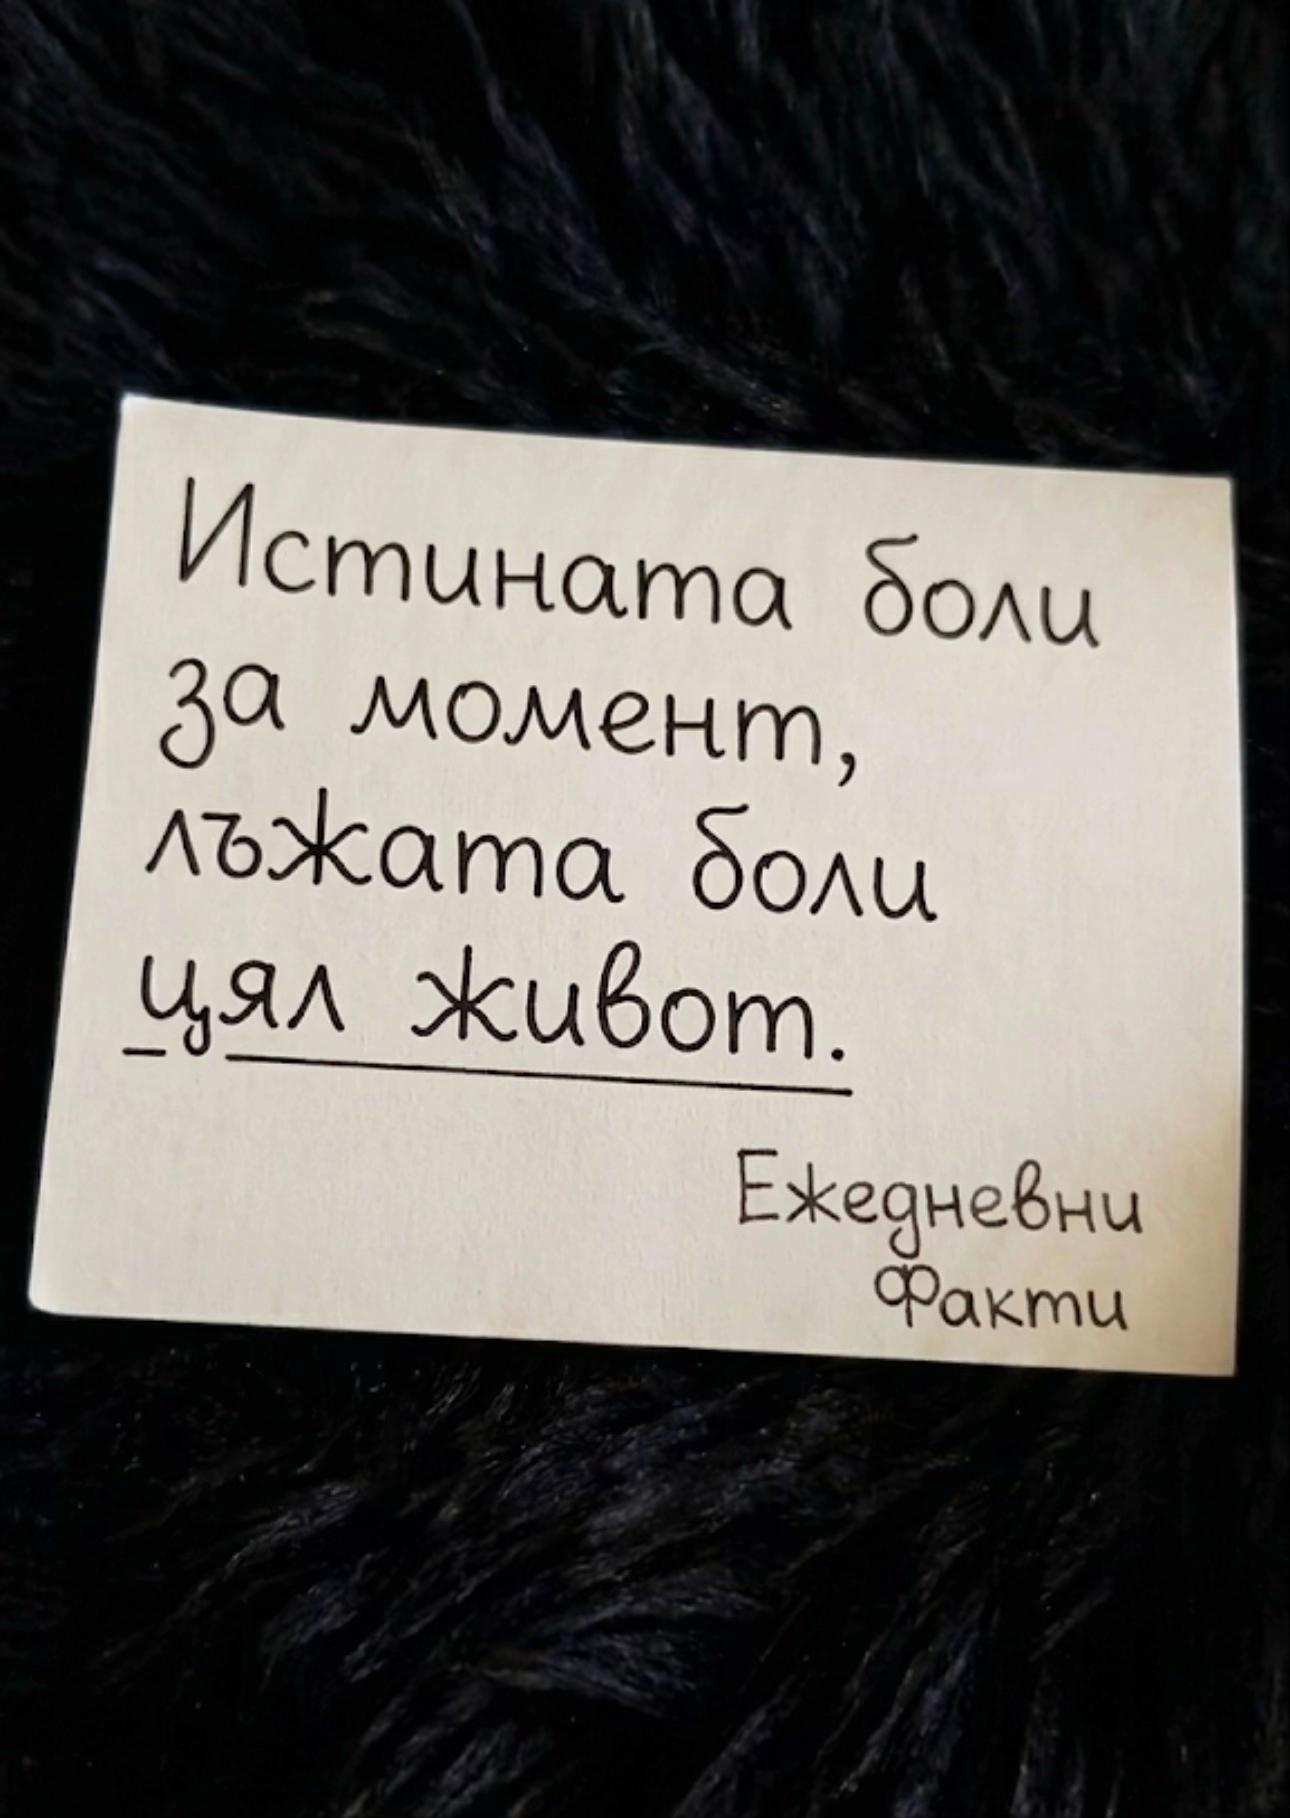 Истината боли
за момент,
лъжата боли
цял живот.
Ежедневни
Факти